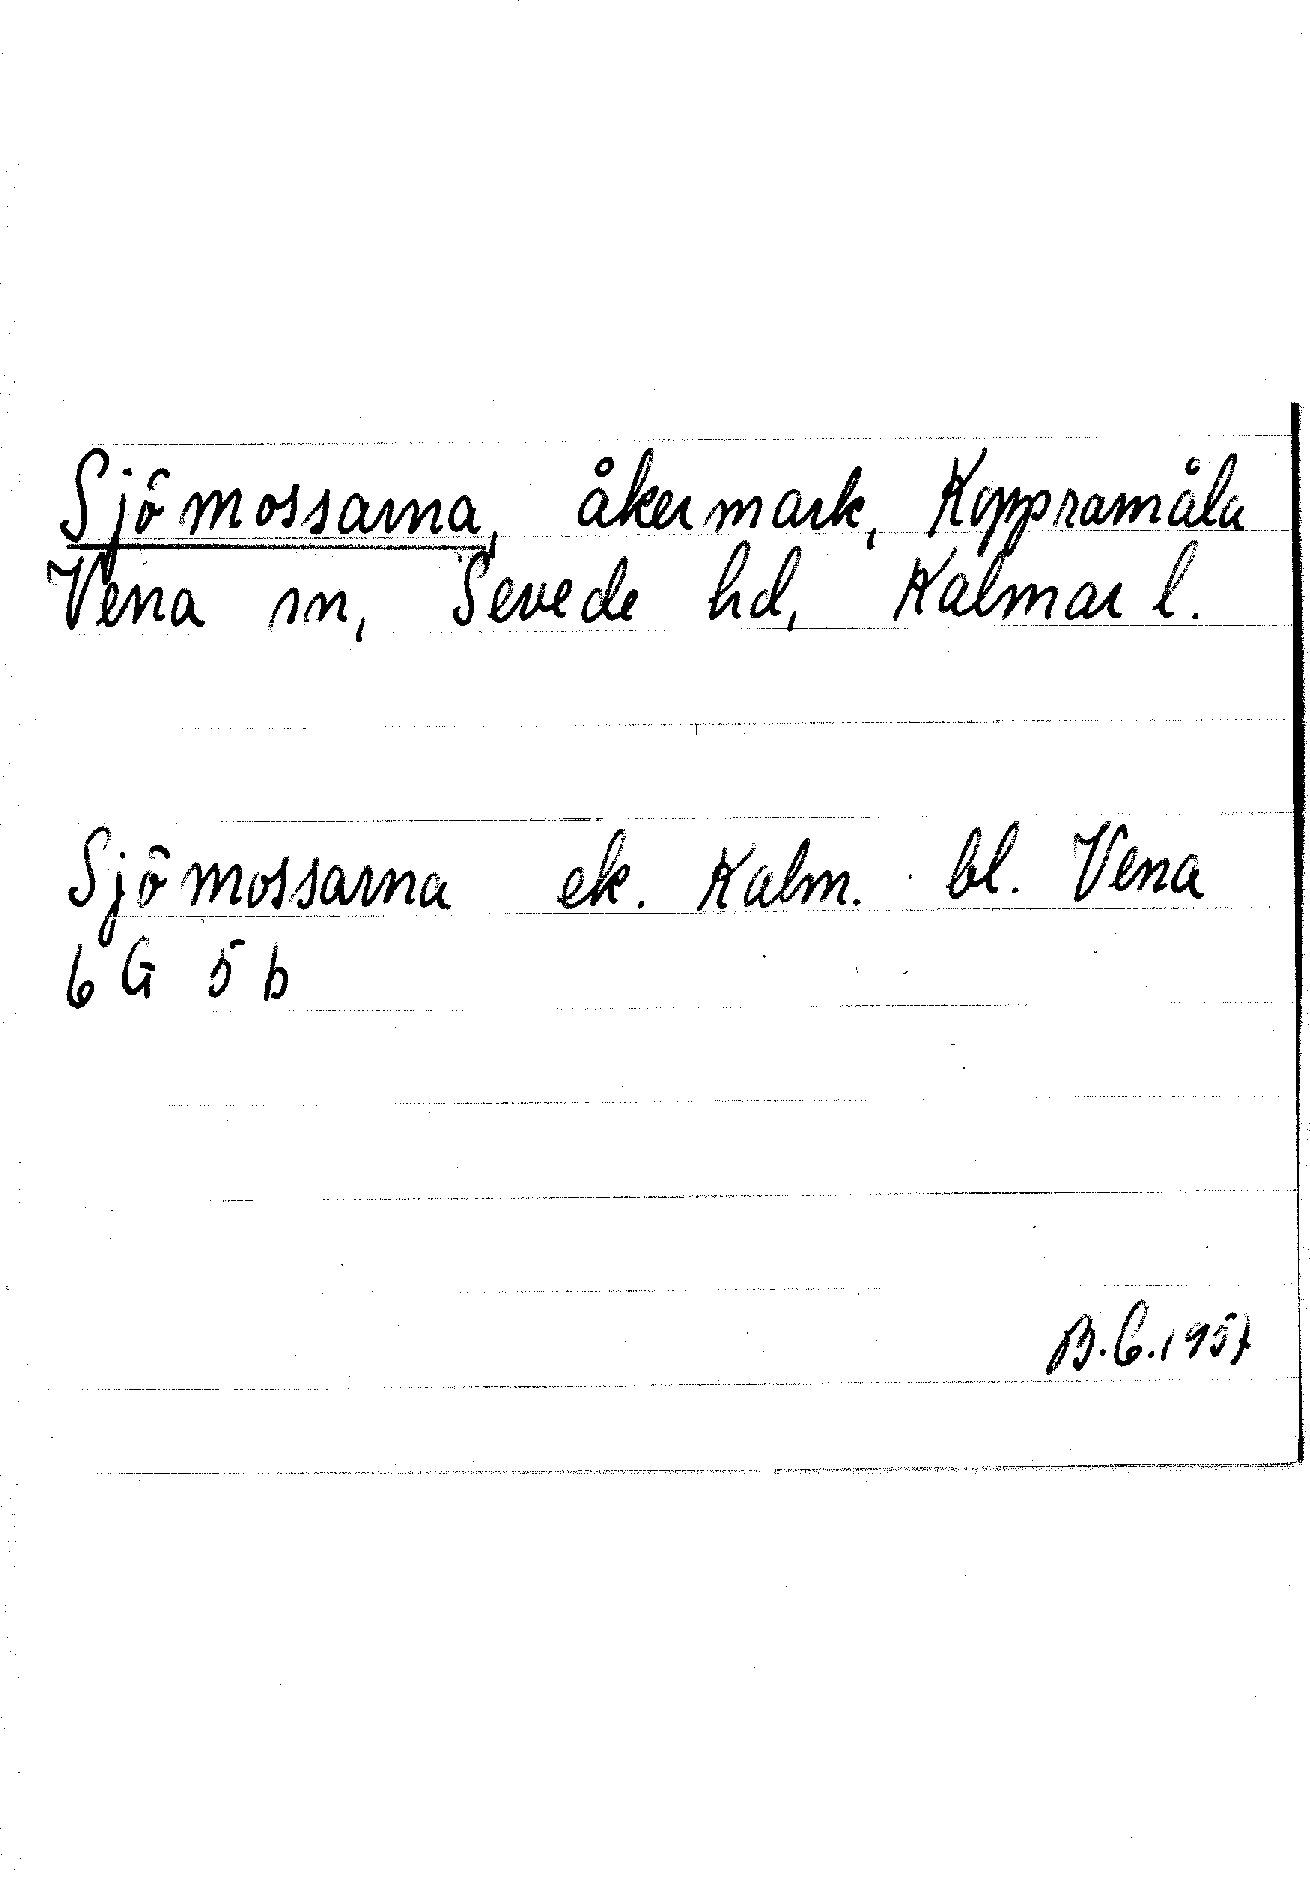 Sjömossarna, åkermark, Koppramåla
Vena sn, Sevede hd, Kalmar l.
Sjömossarna ek. Kalm. bl. Vena
6 G 5 b
B.C. 1957